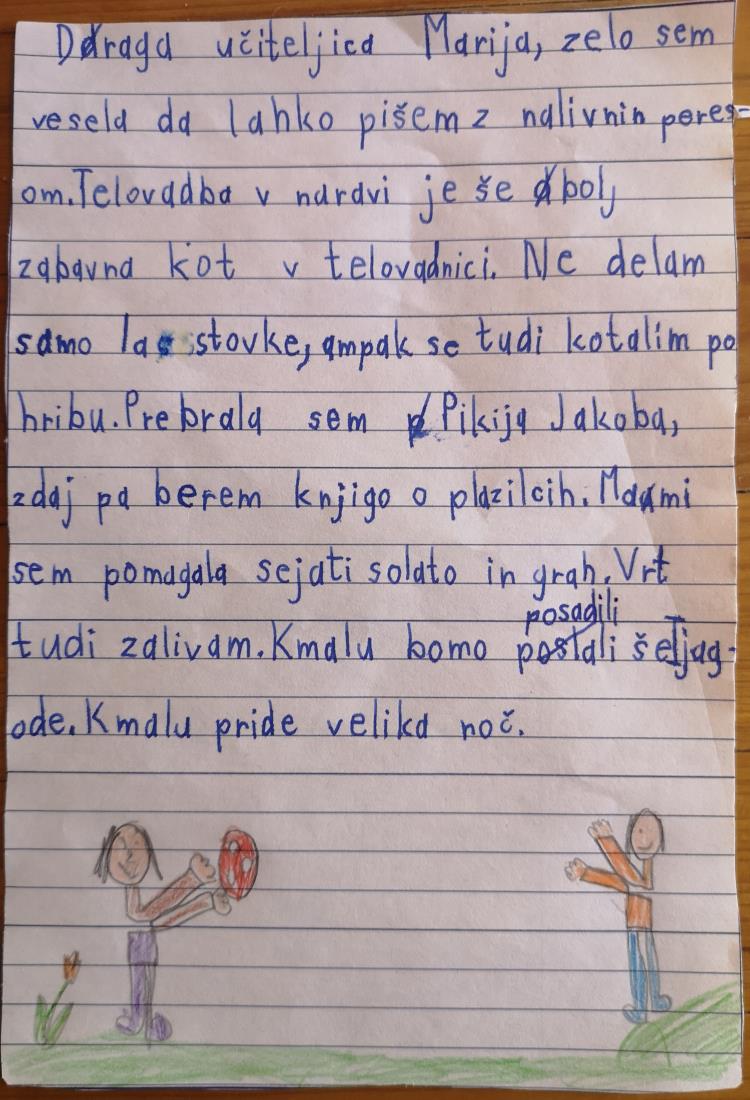 Draga učiteljica Marija, zelo sem
vesela da lahko pišem z nalivnin peres-
om. Telovadba v naravi je še bolj
zabavna kot v telovadnici. Ne delam
samo lastovke, ampak se tudi kotalim po
hribu. Prebrala sem Pikija Jakoba,
zdaj pa berem knjigo o plazilcih. Mami
sem pomagala sejati solato in grah. Vrt
posadili
tudi zalivam. Kmalu bomo postali še jag-
ode. Kmalu pride velika noč.